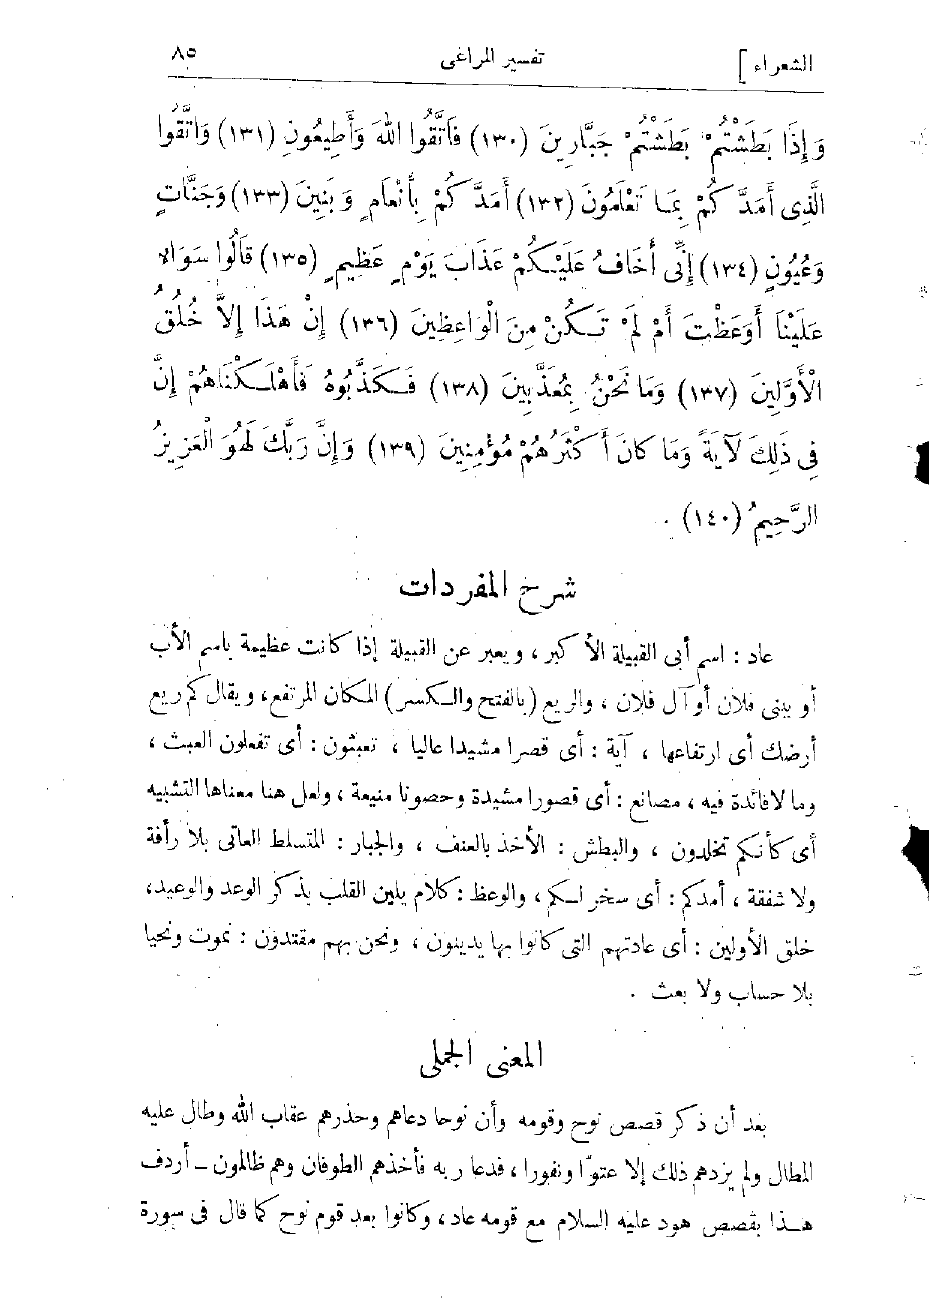 الشعراء ] تفسير المراغى ٨٥
وَإِذَا بَطَشْتُمْ بَطَشْتُمْ جَبَّارِينَ (١٣٠) فَاتَّقُوا اللهَ وَأَطِيعُونِ (١٣١) وَاتَّقُوا
الَّذِى أَمَدَّكُمْ بِمَا تَعْلَمُونَ (١٣٢) أَمَدَّكُمْ بِأَنْعَامٍ وَبَنِينَ (١٣٣) وَجَنَّاتٍ
وَعُيُونٍ (١٣٤) إِنِّى أَخَافُ عَلَيْكُمْ عَذَابَ يَوْمٍ عَظِيمٍ (١٣٥) قَالُوا سَوَاءٌ
عَلَيْنَا أَوَعَظْتَ أَمْ لَمْ تَكُنْ مِنَ الْوَاعِظِينَ (١٣٦) إِنْ هَذَا إِلاَّ خُلُقُ
الْأَوَّلِينَ (١٣٧) وَمَا نَحْنُ بِمُعَذَّبِينَ (١٣٨) فَكَذَّبُوهُ فَأَهْلَكْنَاهُمْ إِنَّ
فِى ذَلِكَ لَآيَةً وَمَا كَانَ أَكْثَرُهُمْ مُؤْمِنِينَ (١٣٩) وَإِنَّ رَبَّكَ لَهُوَ الْعَزِيزُ
الرَّحِيمُ (١٤٠) .
شرح المفردات
عاد : اسم أبى القبيلة الأكبر ، ويعبر عن القبيلة إذا كانت عظيمة باسم الأب
أو ببنى فلان أو آل فلان ، والريع (بالفتح والكسر) المكان المرتفع، ويقال كم ريع
أرضك أى ارتفاعها ، آية : أى قصرا مشيدا عاليا ، تعبثون : أى تفعلون العبث ،
وما لا فائدة فيه ، مصانع : أى قصورا مشيدة وحصونا منيعة ، ولعل هنا معناها التشبيه
أى كأنكم تخلدون ، والبطش : الأخذ بالعنف ، والجبار : المتسلط العاتى بلا رأفة
ولا شفقة ، أمدكم : أى سخر لكم ، والوعظ : كلام يلين القلب بذكر الوعد والوعيد،
خلق الأولين : أى عادتهم التى كانوا بها يدينون ، ونحن بهم مقتدون : نموت ونحيا
بلا حساب ولا بعث .
المعنى الجملى
بعد أن ذكر قصص نوح وقومه وأن نوحا دعاهم وحذرهم عقاب الله وطال عليه
المطال ولم يزدهم ذلك إلا عتوّا ونفورا ، فدعا ربه فأخذهم الطوفان وهم ظالمون ــ أردف
هذا بقصص هود عليه السلام مع قومه عاد، وكانوا بعد قوم نوح كما قال فى سورة